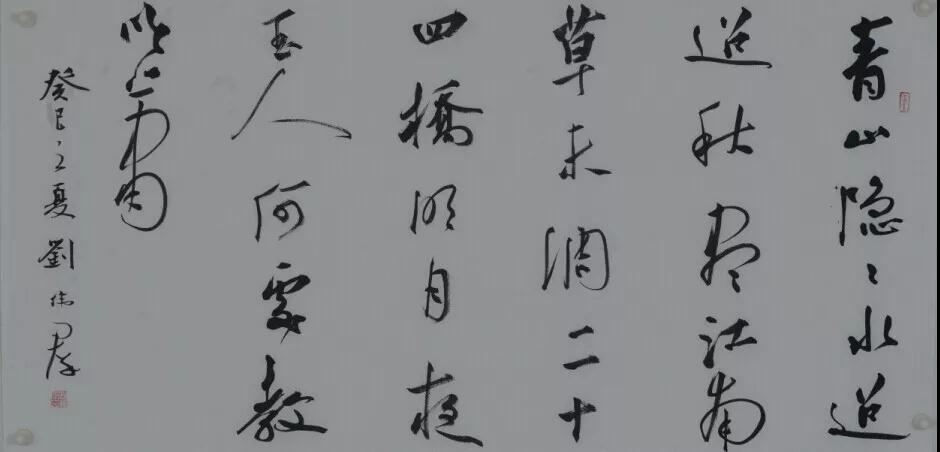 青山隐〻水迢
迢秋尽江南
草未凋二十
四橋明月夜
玉人何處教
吹箫
癸巳之夏劉